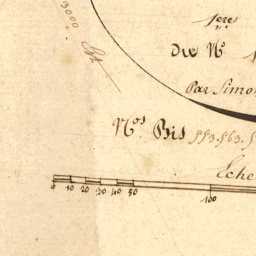 3000
Du N.º
Par Simo
N.os Bis 553. 563.
Eche
0 10 20 30 40 50 100